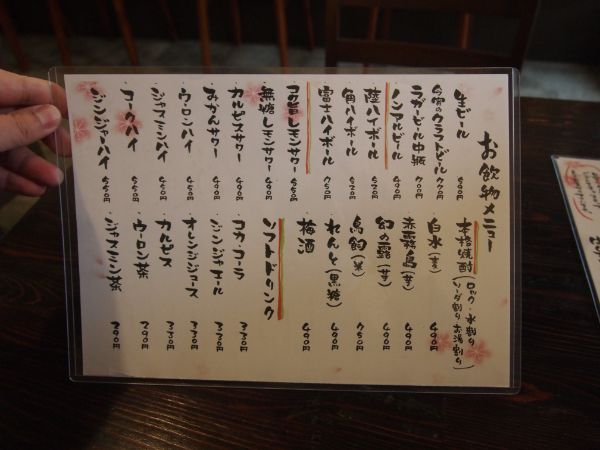 お飲物メニュー
生ビール 490円
今宵のクラフトビール 770円
ラガービール中瓶
ノンアルビール 490円
薩ハイボール 520円
角ハイボール 520円
富士ハイボール 750円
コク旨レモンサワー 550円
無糖レモンサワー 490円
カルピスサワー 490円
みかんサワー 490円
ウーロンハイ 450円
ジャスミンハイ 450円
コークハイ 550円
ジンジャーハイ 550円
本格焼酎（ロック・水割り ソーダ割り お湯割り）
白水（麦） 490円
赤霧島（芋） 490円
幻の露（芋） 490円
鳥飼（米） 750円
れんと（黒糖） 490円
梅酒 490円
ソフトドリンク
コカ・コーラ 330円
ジンジャエール 330円
オレンジジュース 330円
カルピス 330円
ウーロン茶 290円
ジャスミン茶 290円